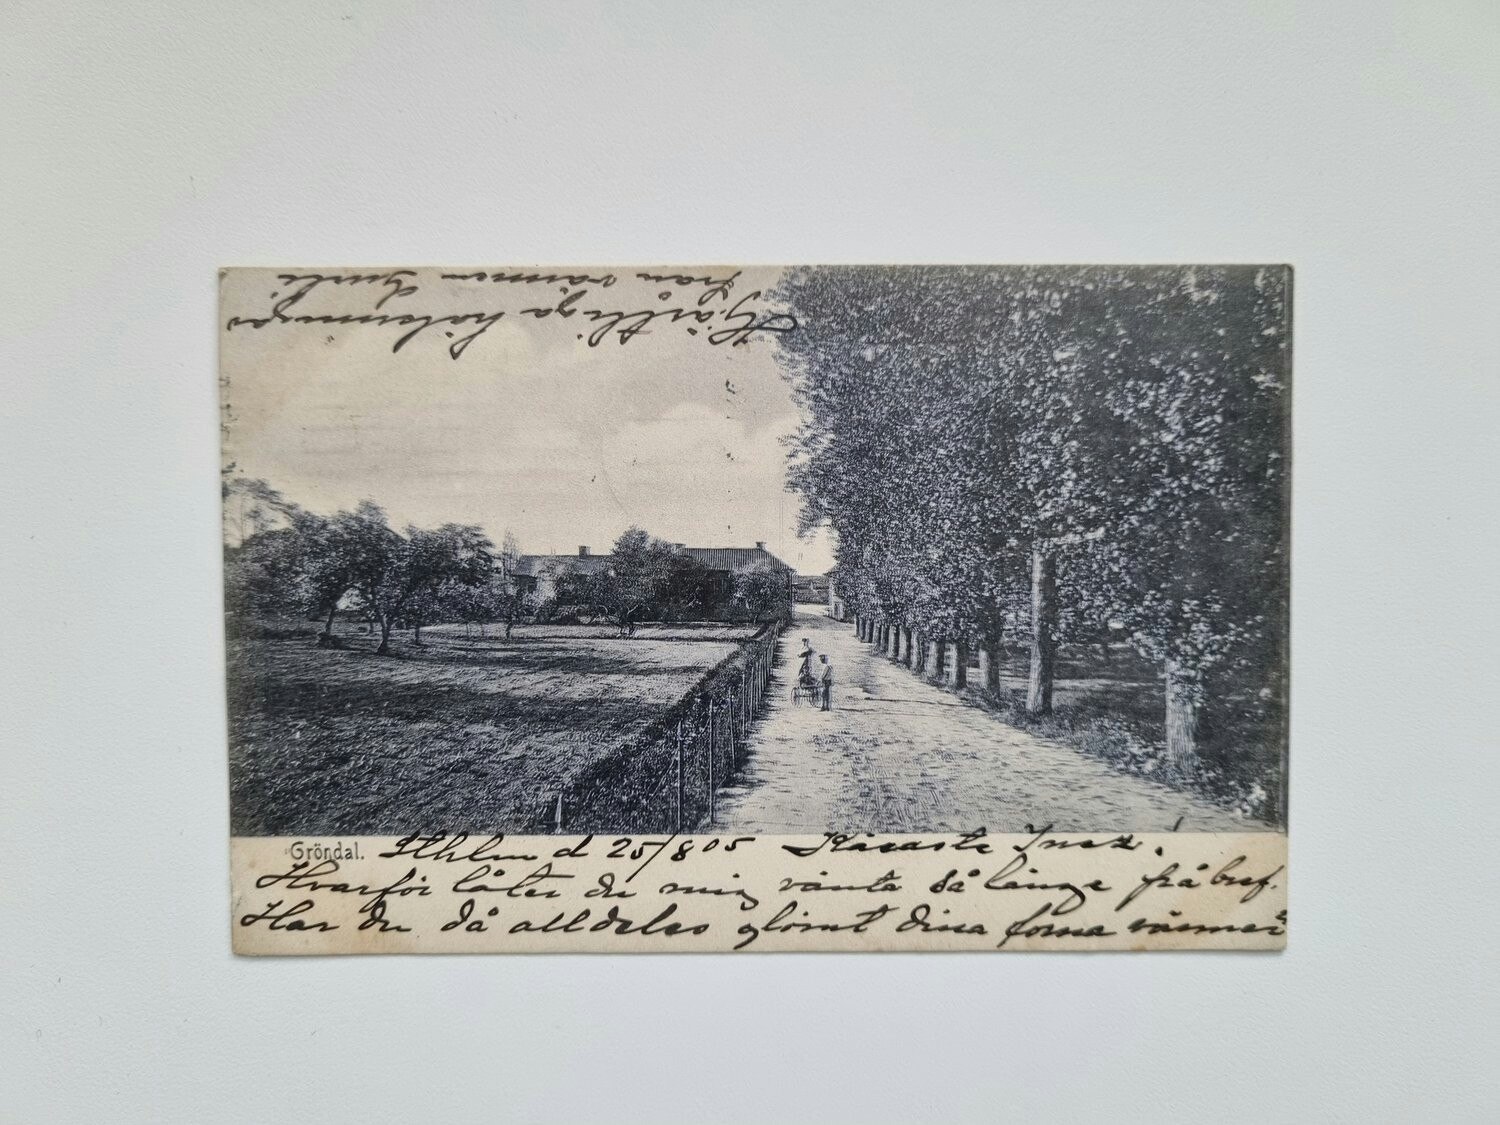 Gröndal. Sthlm d 25/8 05 Käraste Inez!
Hvarför låter du mig vänta så länge på bref.
Har du då alldeles glömt dina forna vänner?
Hjärtliga hälsningar
från vännen Gurli